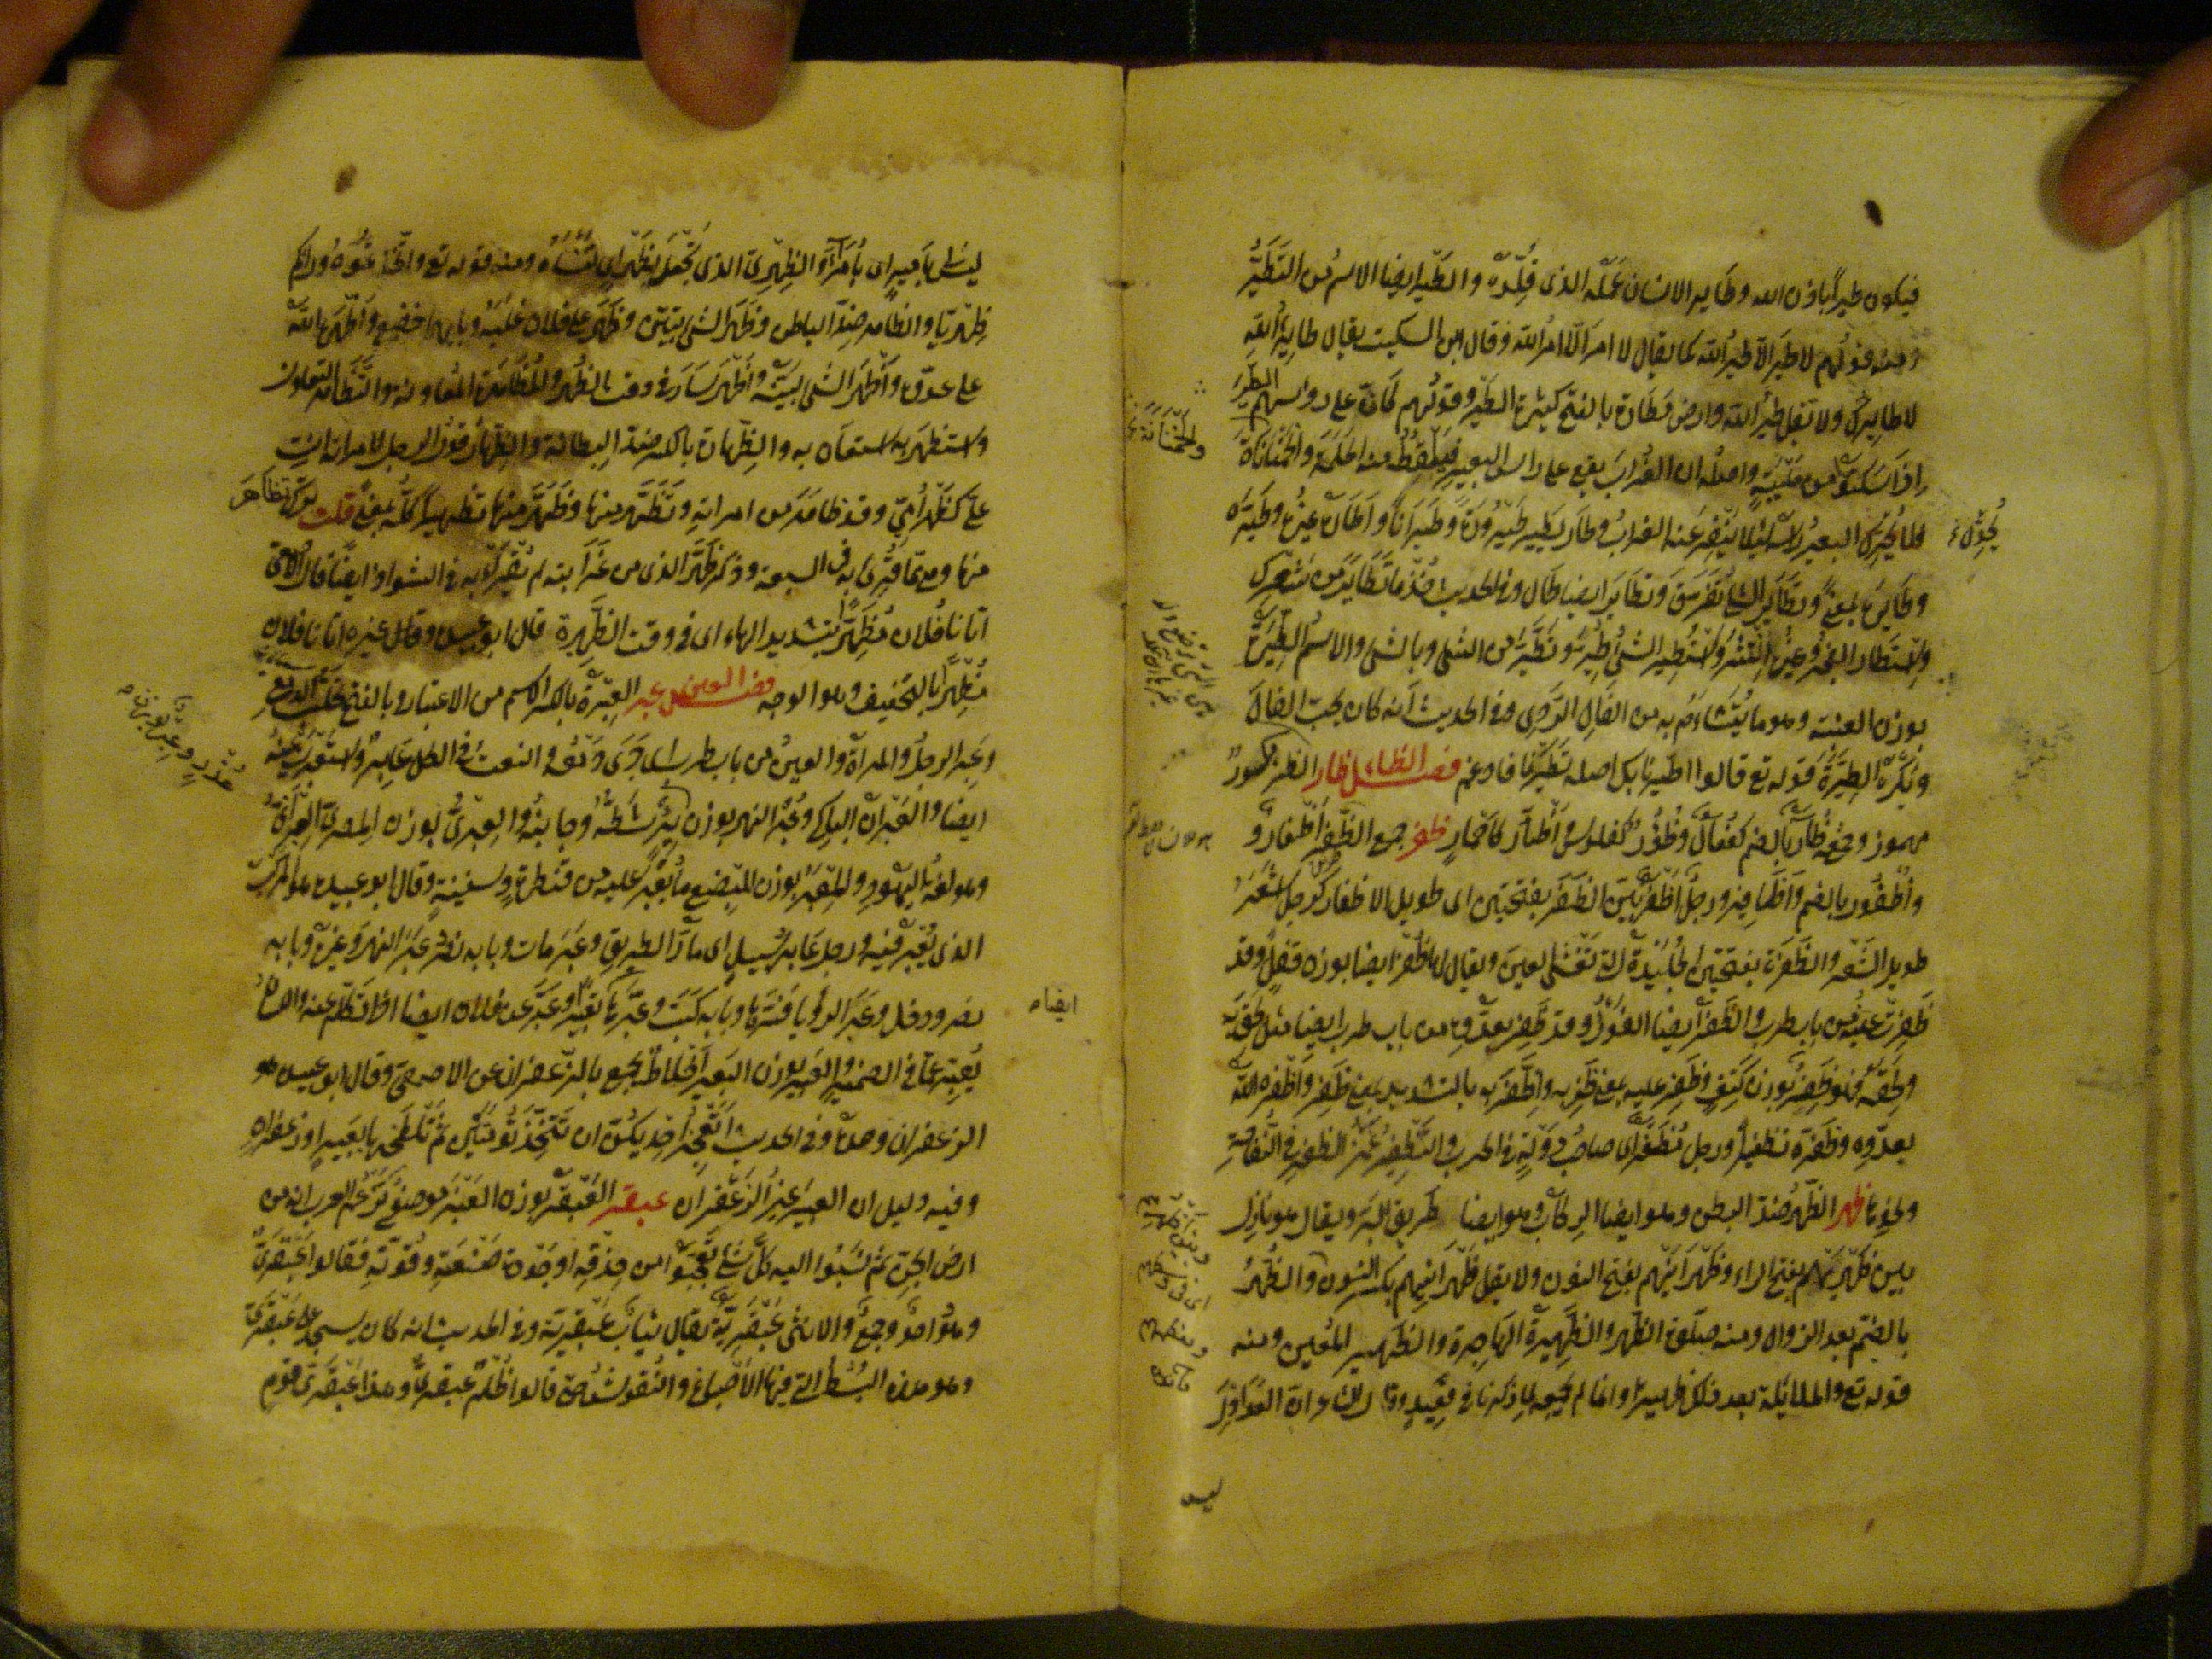 فيكون طيراً باذن الله وطاير الانسان عَمَلُه الذى قُلِّدَه والطَّير ايضا الاسم من التَطَيُّر
ومنه قولُهم لا طيرَ الّا طيرُ الله كما يقال لا امرَ الّا امرُ الله وقال ابن السكيت يقال طايِرُ الله
لا طايِرُك ولا تقل طيرُ الله وارض مَطَارة بالفتح كثيرة الطَّير وقولُهم كَانّ على رؤسهم الطَّيرَ
اذا سَكَنُوا من هَيْبَةٍ واصلُه ان الغُرابَ يقع على راس البعير فيَلْقُطُ منه الحَلَمَةَ والحَمْنَانَةَ
فلا يُحَرِّكُ البعيرُ راسَه لئلا يَنْفِرَ عنه الغرابُ وطار يَطير طَيْرُورَةً وطَيَرَاناً واَطارَه غيرُه وطَيّرَه
وطايَرَه بمعنًى وتَطَايَر الشئ تَفَرّقَ وتَطَايَر ايضا طال وفى الحديث خُذْ ما تَطَايَر من شَعَرِك
واسْتَطار الفجرُ وغيرُه انْتَشَر واسْتُطِير الشئ طُيِّرَ وتَطَيَّرَ من الشئ وبالشئ والاسم الطِّيَرَةُ
بوزن العنبة وهو ما يُتَشَاءَمُ به من الفَالِ الرَّدِى وفى الحديث اَنه كان يحبّ الفالَ
ويَكْرَهُ الطِيَرَةَ قوله تع قالوا اطّيرنا بك اصله تَطَيَّرْنَا فادغم فصل الظاء ظار الظِئر مكسورٌ
مهموز وجمعُه ظُآرٌ بالضم كفُعَالٍ وظُؤُرٌ كفلوس واَظْآر كاَحْمَال ظفر جمع الظُّفُر اَظْفار و
واُظْفُور بالضم واَظَافِير ورجلٌ اَظْفَرُ بَيِّنُ الظَفَر بفتحتين اى طويل الاظفار كرجل اَشْعَرُ
طويل الشَّعَر والظَّفَرَة بفتحتين الجُلَيْدَةُ التى تَغْشَى العينَ ويقال لها ظُفْر ايضا بوزن قُفْلٍ وقد
ظَفِرَتْ عينُه من باب طرب والظَّفَر ايضا الفَوْزُ وقد ظَفِر بعدُوِّه من باب طرب ايضا مثل لَحِقَ به
ولَحِقَه فهو ظَفِرٌ بوزن كَتِفٍ وظَفِر عليه بمعنى ظَفِر به واظَّفَر به بالتشديد بمعنى ظَفِر واَظْفَره اللّه
بعدُوِّه وظَفَّرَه تظفيراً ورجل مُظَفَّرٌ اى صاحبُ دَوْلَةٍ فى الحرب والتَّظْفِير غَمْزُ الظفر فى التُّفّاحَةِ
ونحوها ظهر الظَّهرُ ضدّ البطن وهو ايضا الرِكَابُ وهو ايضا طَريق البَرّ ويقال هو نازِل
بين ظَهْرَيْهِم بفتح الراء وظَهْرَانَيْهِم بفتح النون ولا يقل ظَهْرَانِيهم بكسر النون والظُّهْرُ
بالضم بعد الزوال ومنه صَلَوةُ الظُّهر والظَّهِيرةُ الهَاجِرة والظَّهير المُعِين ومنه
قوله تع والملائكة بعد ذلك ظهير وانما لم يجمعه لما ذكرنا فى قعيد وقال الشاعر انّ العَوَاذِلَ
ليس
ليسْنَ لى باَميرٍ اى باُمَرَآءَ والظِهْرِىّ الذى تَجْعَلُه بِظَهْرٍ اى تَنْسَاهُ ومنه قوله تع واتّخذتموه وراءكم
ظِهْرِيّا والظاهر ضِدّ الباطن وظَهَر الشئ تَبَيّن وظَهَر على فلان غَلَبَه وبابهما خضع واَظْهَرَه اللّه
على عدوّه واَظْهَر الشئ بَيَّنَه واَظْهَر سَارَ فى وقت الظُهْر والمُظَاهَرَة المُعَاوَنة والتَّظاهُر التعاون
واستظهر به استعان به والظِّهَارة بالكسر ضدّ البِطانة والظِّهارُ قولُ الرجل لامراته انتِ
علىّ كظَهْرِ اُمّى وقد ظَاهَرَ من امراته وتَظَهَّر منها وظَهَّرَ منها تظهيراً كلّه بمعنًى قلت ترك تَظَاهَرَ
منها وهو مما قُرِئ به فى السبعة وذكر ظَهَّرَ الذى من غَرَابته لم يُقْرَأ به فى الشواذ ايضا قال الاصمعى
اتانا فُلان مُظَهِّراً بتشديد الهاء اى فى وقت الظَّهِيرة قال ابو عبيد وقال غيره اتانا فلان
مُظْهِراً بالتخفيف وهو الوجه فصل العين عبر العِبْرةُ بالكسر الاسم من الاعتبار وبالفتح تَحَلُّبُ الدمع
وعَبِرَ الرجلُ والمراةُ والعينُ من باب طرب اى جَرَى دَمْعُه والنعتُ فى الكل عابِرٌ واسْتَعْبَرت عينُه
ايضا والعَبْرانُ الباكِى وعُبْرُ النهر بوزن تِبْر شَطُّه وجانبُه والعِبْرِىُّ بوزن المصرىّ العِبْرَانِىُّ
وهو لغةُ اليهود والمِعْبَرُ بوزن المِبْضَع ما يُعْبَرُ عليه من قنطرةٍ وسفينةٍ وقال ابو عبيد هو المَرْكَبُ
الذى يُعْبَر فيه ورجل عابرُ سَبيل اى مارُّ الطريقِ وعَبَر مات وبابه نصر وعَبَرَ النهر وغيرَه وبابه
نصر ودخل وعَبَر الرؤيا فَسَّرَها وبابه كَتَبَ وعَبَّرَها تعبيراً وعَبَّرَ عن فلان ايضا اذا تَكَلَّم عنه واللسانُ
يُعَبِّر عمّا فى الضمير والعَبِير بوزن البَعِير اَخْلاطٌ تُجمع بالزَّعفران عن الاصمعىّ وقال ابو عبيد هو
الزعفران وحدَه وفى الحديث اَتَعْجِزُ اِحْديكُنّ ان تَتّخِذَ تُومَتَيْن ثم تَلْطَخهما بعَبِيرٍ او زعفران
وفيه دليل ان العبيرَ غيرُ الزَعْفَران عبقر العَبْقَر بوزن العَنْبَر موضعٌ تَزْعُم العرب انه من
ارض الجنّ ثم نَسَبُوا اليه كلَّ شئ تعَجَّبُوا من حِذْقِه او جَوْدَة صَنْعَتِه وقُوّتِه فقالوا عَبْقَرِىّ
وهو واحد وجمعٌ والانثى عَبْقَرِيّة يقال ثيابٌ عَبْقرية وفى الحديث انه كان يسجد على عَبْقَرِىّ
وهو هذه البُسُط التى فيها الاَصْباغ والنُقوش حتى قالوا ظُلْمٌ عبقرىّ وهذا عَبْقَرِىّ قومٍ
ايضاه